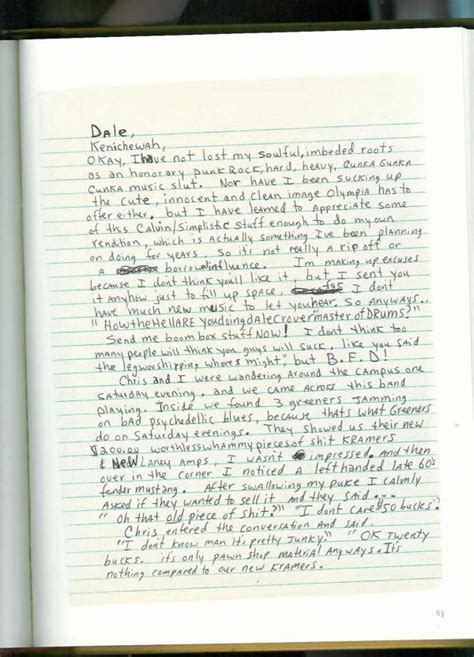 DALE,
Kenichewah,
OKAY, I have not lost my soulful, imbeded roots
as an honorary punk Rock, hard, heavy, Gunka Gunka
Gunka music slut. Nor have I been sucking up
the cute, innocent and clean image Olympia has to
offer either. but I have learned to appreciate some
of this Calvin/simplistic stuff enough to do my own
rendition, which is actually something I've been planning
on doing for years. So its not really a rip off or
a borrowed influence. I'm making up excuses
because I dont think you'll like it, but I sent you
it anyhow just to fill up space. I dont
have much new music to let you hear. So Anyways..
"HowtheHellARE YoudoingdaleCrovermasterofDRUMS?"
Send me boom box stuff NOW! I dont think too
many people will think you guys will suck, like you said
the legworshipping whores might, but B.F.D!
Chris and I were wandering around the campus one
saturday evening, and we came across this band
playing. Inside we found 3 greeners Jamming
on bad psychedellic blues, because thats what Greeners
do on Saturday evenings. They showed us their new
$1200.00 worthlesswhammy pieces of shit KRAMERS
& New Laney Amps, I wasnt impressed. and then
over in the corner I noticed a left handed late 60's
fender mustang. After swallowing my puke I calmly
Asked if they wanted to sell it and they said...
"Oh that old piece of shit?" "I dont care 50 bucks."
Chris entered the conversation and said.
"I dont know man its pretty Junky." "OK Twenty
bucks. its only pawn shop material Anyways. It's
nothing compared to our new Kramers.
63